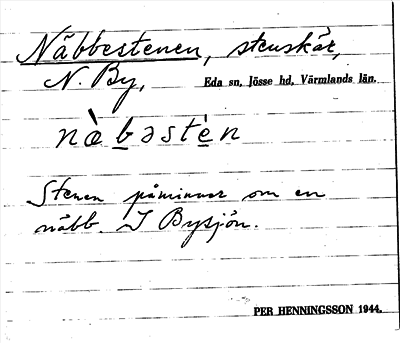 Näbbestenen, stenskär,
N. By, Eda sn, Jösse hd, Värmlands län.
nὰ̀bəstèn
Stenen påminner om en
näbb. I Bysjön.
PER HENNINGSSON 1944.